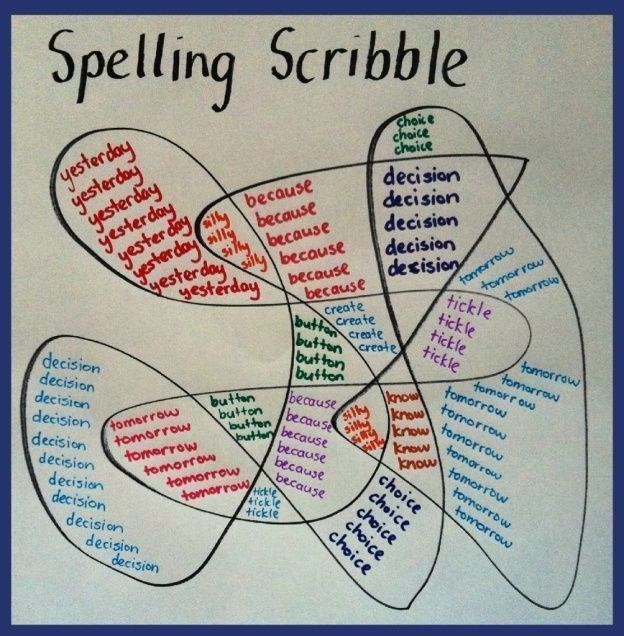 Spelling Scribble
yesterday
yesterday
yesterday
yesterday
yesterday
yesterday
yesterday
yesterday
silly
silly
silly
silly
because
because
because
because
because
because
choice
choice
choice
decision
decision
decision
decision
decision
tomorrow
tomorrow
tomorrow
create
create
create
create
button
button
button
button
tickle
tickle
tickle
tickle
decision
decision
decision
decision
decision
decision
decision
decision
decision
decision
decision
tomorrow
tomorrow
tomorrow
tomorrow
tomorrow
button
button
button
button
tickle
tickle
tickle
because
because
because
because
because
because
silly
silly
silly
silly
know
know
know
know
know
choice
choice
choice
choice
choice
tomorrow
tomorrow
tomorrow
tomorrow
tomorrow
tomorrow
tomorrow
tomorrow
tomorrow
tomorrow